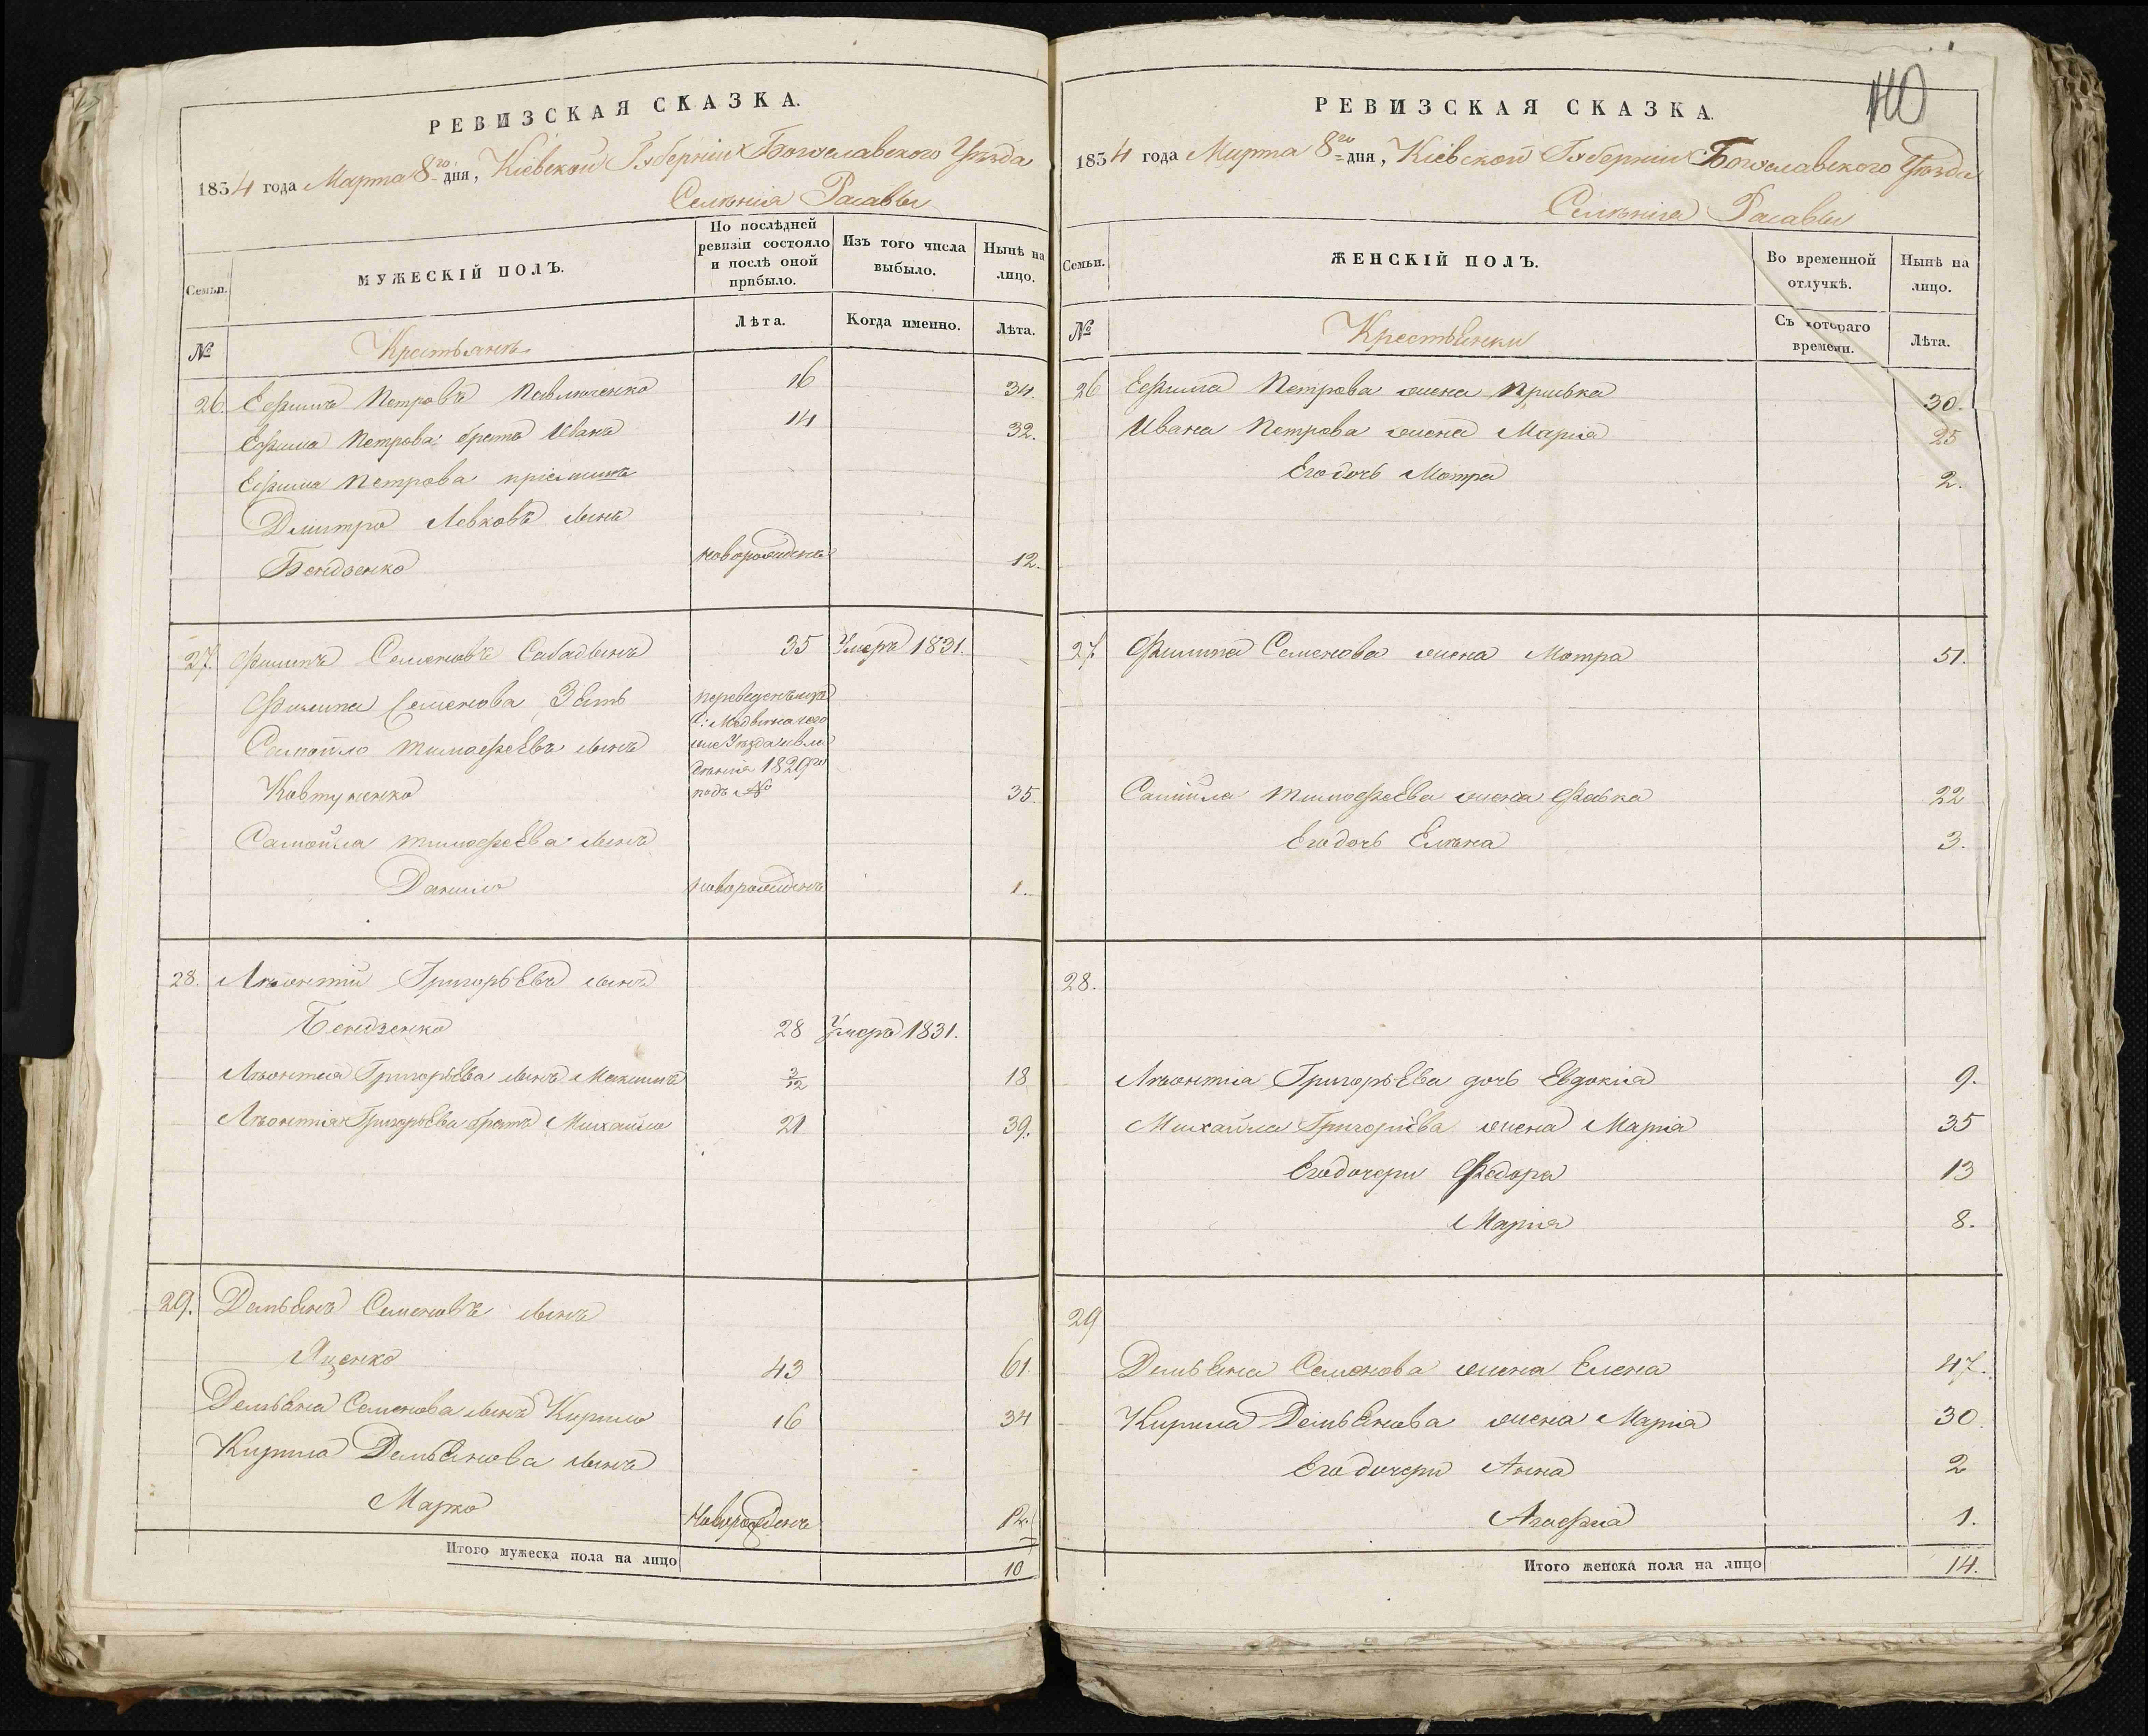 РЕВИЗСКАЯ СКАЗКА.
1834 года Марта 8го дня, Кіевской Губерніи Богуславского Уѣзда
Селенія Расавы
Семьи.
МУЖЕСКІЙ ПОЛЪ.
По послѣдней ревизіи состояло и послѣ оной прибыло.
Изъ того числа выбыло.
Нынѣ на лицо.
№
Крестьянъ
Лѣта.
Когда именно.
Лѣта.
26. Ефимъ Петровъ Павлюченко 16 34.
Ефима Петрова братъ Иванъ 14 32.
Ефима Петрова пріемышъ
Дмитро Левковъ сынъ
Бендзенко новорожденъ 12.
27. Филипъ Семеновъ Сабадынъ 35 Умеръ 1831.
Филипа Семенова Зять переведенъ изъ
С: Медвина того
Самойло Тимофеевъ сынъ же Уѣзда
1829го
Ковтуненко подъ № 35.
Самойла Тимофеева сынъ
Данило новорожденъ 1.
28. Леонтій Григорьевъ сынъ
Бендзенко 28 Умеръ 1831.
Леонтія Григорьева сынъ Максимъ 3/12 18
Леонтія Григорьева братъ Михайло 21 39.
29. Демьянъ Семеновъ сынъ
Яценко 43 61.
Демьяна Семенова сынъ Кирило 16 34
Кирила Демьянова сынъ
Марко новорожденъ
Итого мужеска пола на лицо 10
РЕВИЗСКАЯ СКАЗКА.
110
1834 года Марта 8го дня, Кіевской Губерніи Богуславского Уѣзда
Селенія Расавы
Семьи.
ЖЕНСКІЙ ПОЛЪ.
Во временной отлучкѣ.
Нынѣ на лицо.
№
Крестьянки
Съ котораго времени.
Лѣта.
26 Ефима Петрова жена Приська 30.
Ивана Петрова жена Марія 25
Его дочь Мотра 2.
27. Филипа Семенова жена Мотра 51.
Самойла Тимофеева жена Февка 22
Его дочь Елена 3.
28.
Леонтія Григорьева дочь Евдокія 9.
Михайла Григорьева жена Марія 35
Его дочери Федора 13
Марія 8.
29
Демьяна Семенова жена Елена 47.
Кирила Демьянова жена Марія 30.
Его дочери Анна 2
Агафія 1.
Итого женска пола на лицо 14.